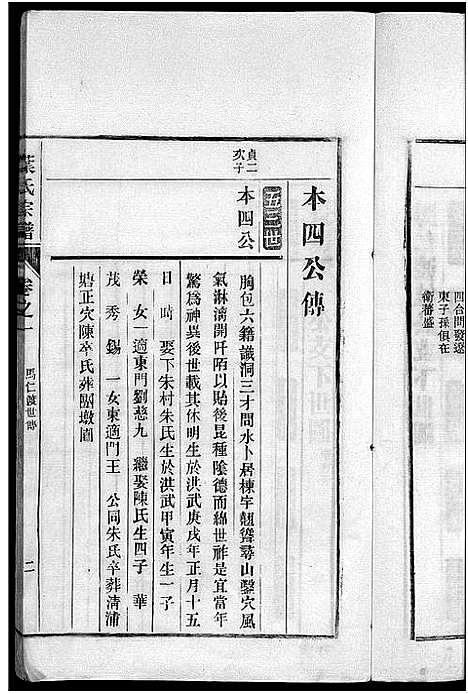 四台問發邊
東子孫俱在
衛蕃盛
本四公傳
貞二
次子
本四公
胸包六籍識洞三才問水卜居棟宇翹聳尋山鑿穴風
氣淋漓開阡陌以貽後昆種陰德而綿世祚是宜當年
驚為神異後世載其休明生於洪武庚戌年正月十五
日時娶下朱村朱氏生於洪武甲寅年生一子
榮女一適東門劉慈九繼娶陳氏生四子華
茂秀錫一女東適門王公同朱氏卒葬清浦
塘正穴陳卒氏葬墩圖
葉氏宗譜
卷之一
馬仁渡世傳
二